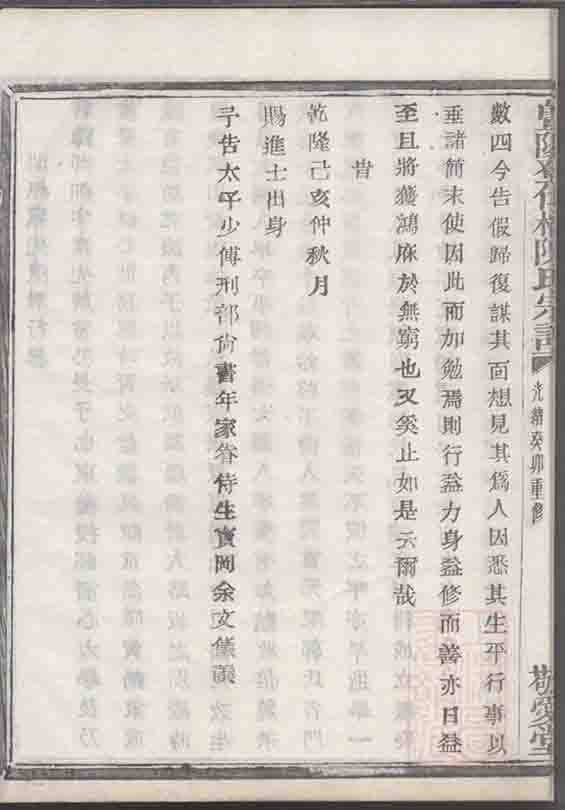 數四今告假歸復謀其面想見其爲人因悉其生平行事以
垂諸簡末使因此而加勉焉則行益力身益修而善亦日益
至且將獲鴻庥於無窮也又奚止如是云爾哉
旹
乾隆己亥仲秋月
賜進士出身
予告太子少傅刑部尚書年家眷侍生寳岡余文儀譔
陳氏宗譜
光緒癸卯重修
敬愛堂